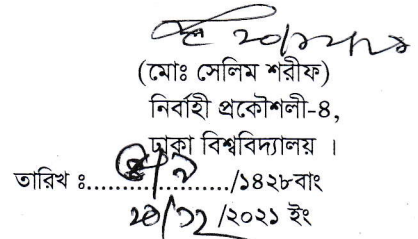 ২০/১২/২১
(মোঃ সেলিম শরীফ)
নির্বাহী প্রকৌশলী-৪,
ঢাকা বিশ্ববিদ্যালয় ।
তারিখ ঃ....................../১৪২৮বাং
২০/১২/২০২১ ইং